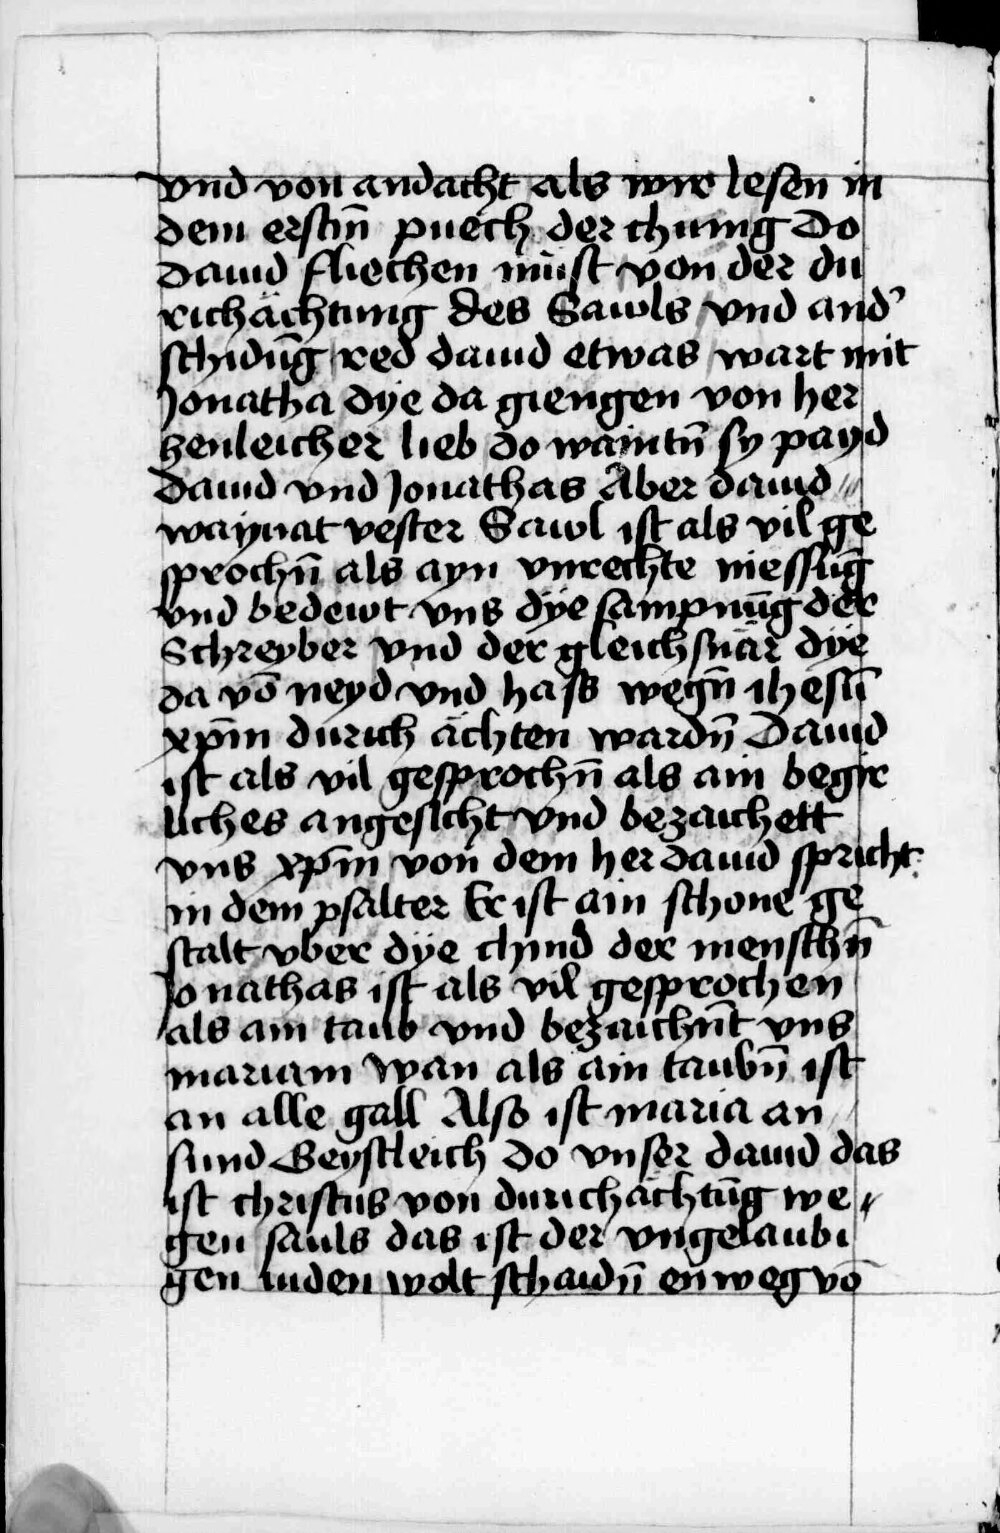 vnd von andacht als wir lesen in
dem erstn̄ puech der chunig Do
dauid fliechen müst von der du
richächtung des Sawls vnd and᾽
schidūg red dauid etwas wart mit
Jonatha dÿe da giengen von her
tzenleicher lieb do waintn̄ sy payd
dauid vnd Jonathas Aber dauid
waynat vester Sawl ist als vil ge
sprochn̄ als ayn vnrechte niessūg
vnd bedewt vns dÿe sampnūg der
Schreyber vnd der gleichsnär dÿe
da vō neyd vnd hass wegn̄ ihesū
xp̄m durich ächten wardn̄ Dauid
ist als vil gesprochn̄ als ain begir
liches angesicht vnd bezaichett
vns xp̄m von dem her dauid spricht
in dem psalter Er ist ain schone ge
stalt vber dÿe chind der menschn̄
Jonathas ist als vil gesprochen
als ain taub vnd bezaichn̄t vns
mariam Wan als ain taubn̄ ist
an alle gall Also ist maria an
sund Geystleich do vnser dauid das
ist christus von durichächtūg we〃
gen sauls das ist der vngelaubi
gen iuden wolt schaidn̄ en weg vō